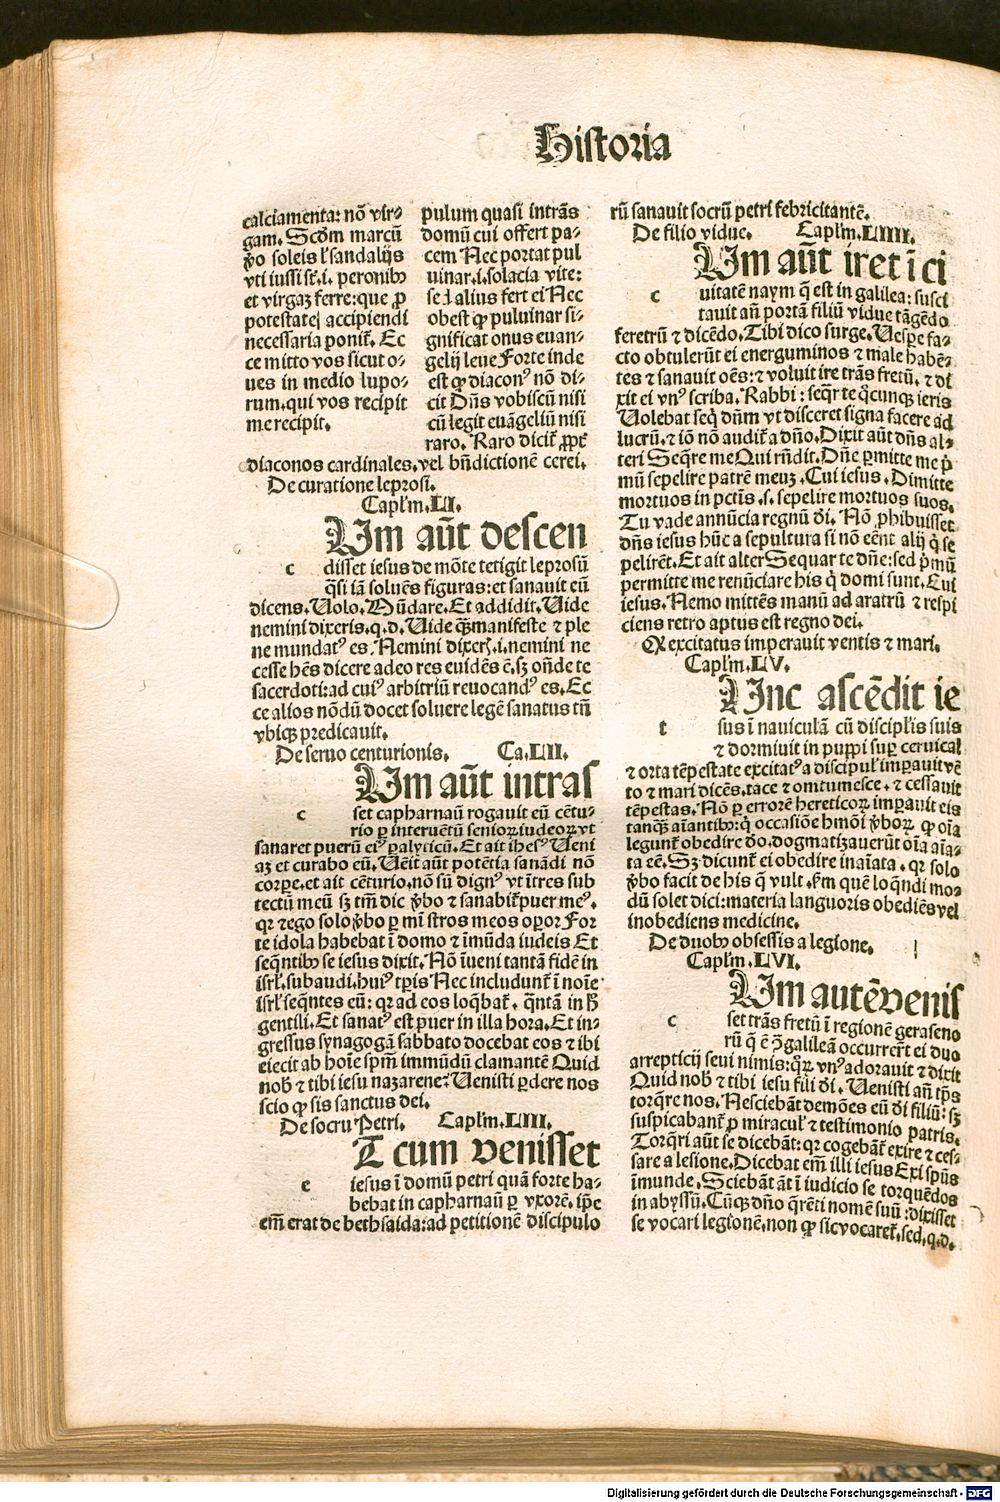 Historia
calciamenta: nō vir-
gam. Scd̄m marcū
v̄o soleis ł sandalijs
vti iussi st̄.i. peronibꝰ
et virgaꝫ ferre: que ꝓ
potestatẽ accipiendi
necessaria ponit̄. Ec
ce mitto vos sicut o-
ues in medio lupo-
rum.qui vos recipit
me recipit.
pulum quasi intrās
domū cui offert pa-
cem Nec portat pul
uinar.i.solacia vite:
sed alius fert ei Nec
obest ꝙ puluinar si-
gnificat onus euan-
gelij leue Forte inde
est ꝙ diaconꝰ nō di-
cit Dn̄s vobiscū nisi
cū legit euāgeliū nisi
raro. Raro dicit̄ ꝓpt̄
diaconos cardinales.vel bn̄dictionē cerei.
De curatione leprosi.
Capl'm.LI.
c Um aūt descen
disset iesus de mōte tetigit leprosū
q̄si iā soluēs figuras: et sanauit eū
dicens.Uolo.Mūdare. Et addidit.Uide
nemini dixeris.q.d.Uide qꝫ manifeste ⁊ ple
ne mundatꝰ es. Nemini dixerꝭ.i.nemini ne
cesse hēs dicere adeo res euidēs ē.sꝫ on̄de te
sacerdoti: ad cuiꝰ arbitriū reuocandꝰ es. Ec
ce alios nōdū docet soluere legē sanatus tn̄
vbiqꝫ predicauit.
De seruo centurionis. Ca.LII.
c Um aūt intras
set capharnaū rogauit eū cētu-
rio ꝑ interuētū senioꝝ iudeoꝝ vt
sanaret puerū eiꝰ ꝑalyticū. Et ait ihesꝰ Ueni
aꝫ et curabo eū. Uēit aūt potētia sanādi nō
corꝑe.et ait cēturio.nō sū dignꝰ vt ītres sub
tectū meū sꝫ tm̄ dic v̄bo ⁊ sanabit̄ puer meꝰ.
qꝛ ⁊ ego solo v̄bo ꝑ mīstros meos oꝑor For
te idola habebat ī domo ⁊ īmūda iudeis Et
seq̄ntibꝰ se iesus dixit. Nō īueni tantā fidē in
isrl̄.subaudi.huiꝰ tꝑis Nec includunt̄ ī noīe
isrl̄ seq̄ntes eū: qꝛ ad eos loq̄bat̄. q̄ntā in h̄
gentili. Et sanatꝰ est puer in illa hora. Et in-
gressus synagogā sabbato docebat eos ⁊ ibi
eiecit ab hoīe spm̄ immūdū clamantē Quid
nob̄ ⁊ tibi iesu nazarene? Uenisti ꝑdere nos
scio ꝙ sis sanctus dei.
De socru Petri. Capl'm.LIII.
e T cum venisset
iesus ī domū petri quā forte ha-
bebat in capharnaū ꝑ vxorē. ip̄e
em̄ erat de bethsaida: ad petitionē discipulo
rū sanauit socrū petri febricitantē.
De filio vidue. Capl'm.LIIII.
c Um aūt iret ī ci
uitatē naym q̄ est in galilea: susci
tauit an̄ portā filiū vidue tāgēdo
feretrū ⁊ dicēdo. Tibi dico surge. Uesꝑe fa-
cto obtulerūt ei energuminos ⁊ male habē-
tes ⁊ sanauit oēs: ⁊ voluit ire trās fretū. ⁊ di
xit ei vnꝰ scriba. Rabbi: seqr̄ te q̄cunqꝫ ieris
Uolebat seq̄ dn̄m vt disceret signa facere ad
lucrū. ⁊ iō nō audit̄ a dn̄o. Dixit aūt dn̄s al-
teri Seq̄re me Qui rn̄dit. Dn̄e ꝑmitte me p̄
mū sepelire patrē meuꝫ. Cui iesus. Dimitte
mortuos in pct̄is .s. sepelire mortuos suos.
Tu vade annūcia regnū d̄i. Nō ꝓhibuisset
dn̄s iesus hūc a sepultura si nō eēnt alij q̄ se
pelirēt. Et ait alter Sequar te dn̄e: sed p̄mū
permitte me renūciare his q̄ domi sunt. Cui
iesus. Nemo mittēs manū ad aratrū ⁊ respi
ciens retro aptus est regno dei.
Qꝫ excitatus imperauit ventis ⁊ mari.
Capl'm.LV.
t Unc ascēdit ie
sus ī nauiculā cū discipl̄is suis
⁊ dormiuit in puppi suꝑ ceruical
⁊ orta tēpestate excitatꝰ a discipul' imꝑauit vē
to ⁊ mari dicēs.tace ⁊ omtumesce. ⁊ cessauit
tēpestas. Nō ꝑ errorē hereticoꝝ imꝑauit eis
tanqꝫ aīantibꝰ: q̄ occasiōe hmōi v̄boꝝ ꝙ oīa
legunt̄ obedire d̄o.dogmatizauerūt oīa aīa-
ta eē. Sꝫ dicunt̄ ei obedire inaīata. qꝛ solo
v̄bo facit de his q̄ vult. ẜm quē loq̄ndi mo-
dū solet dici: materia languoris obediēs vel
inobediens medicine.
De duobꝰ obsessis a legione.
Capl'm.LVI.
c Um autē venis
set trās fretū ī regionē geraseno
rū q̄ ē ꝯ galileā occurrer̄t ei duo
arrepticij seui nimis: q̄ꝝ vnꝰ adorauit ⁊ dixit
Quid nob̄ ⁊ tibi iesu fili d̄i. Uenisti an̄ tp̄s
torq̄re nos. Nesciebāt demōes eū d̄i filiū: sꝫ
suspicabant̄ ꝓ miracul' ⁊ testimonio patris.
Torq̄ri aūt se dicebāt: qꝛ cogebāt̄ exire ⁊ ces-
sare a lesione. Dicebat em̄ illi iesus Exi spūs
īmunde. Sciebāt āt ī iudicio se torquēdos
in abyssū. Cūqꝫ dn̄o q̄rēti nomē suū: dixisset
se vocari legionē.non ꝙ sic vocaret̄.sed.q.d.
Digitalisierung gefördert durch die Deutsche Forschungsgemeinschaft - DFG